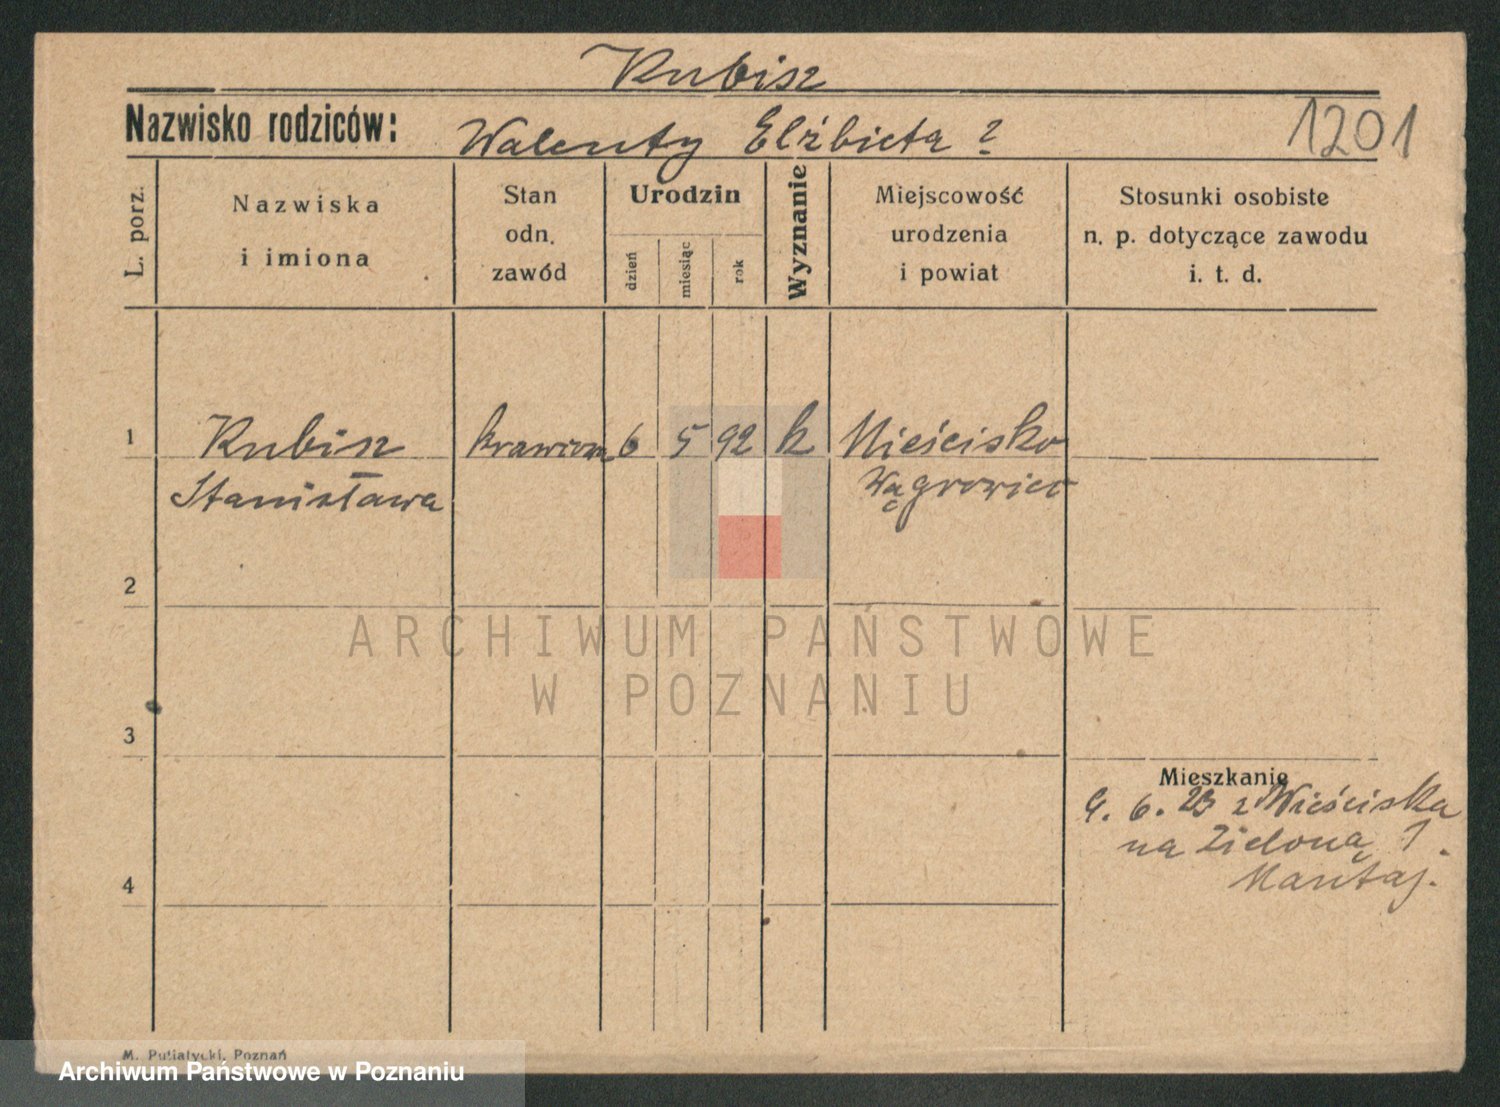 Kubisz
Nazwisko rodziców: Walenty Elżbieta ?
1201
L. porz.
Nazwiska
i imiona
Stan
odn.
zawód
Urodzin
dzień
miesiąc
rok
Wyznanie
Miejscowość
urodzenia
i powiat
Stosunki osobiste
n. p. dotyczące zawodu
i. t. d.
1 Kubisz 6 5 92 k Mieścisko
Stanisława Wągrowiec
2
ARCHIWUM PAŃSTWOWE
W POZNANIU
3
Mieszkanie
9. 6. 23 z Mieściska
na Zieloną 1.
4
M. Putiatycki, Poznań
Archiwum Państwowe w Poznaniu